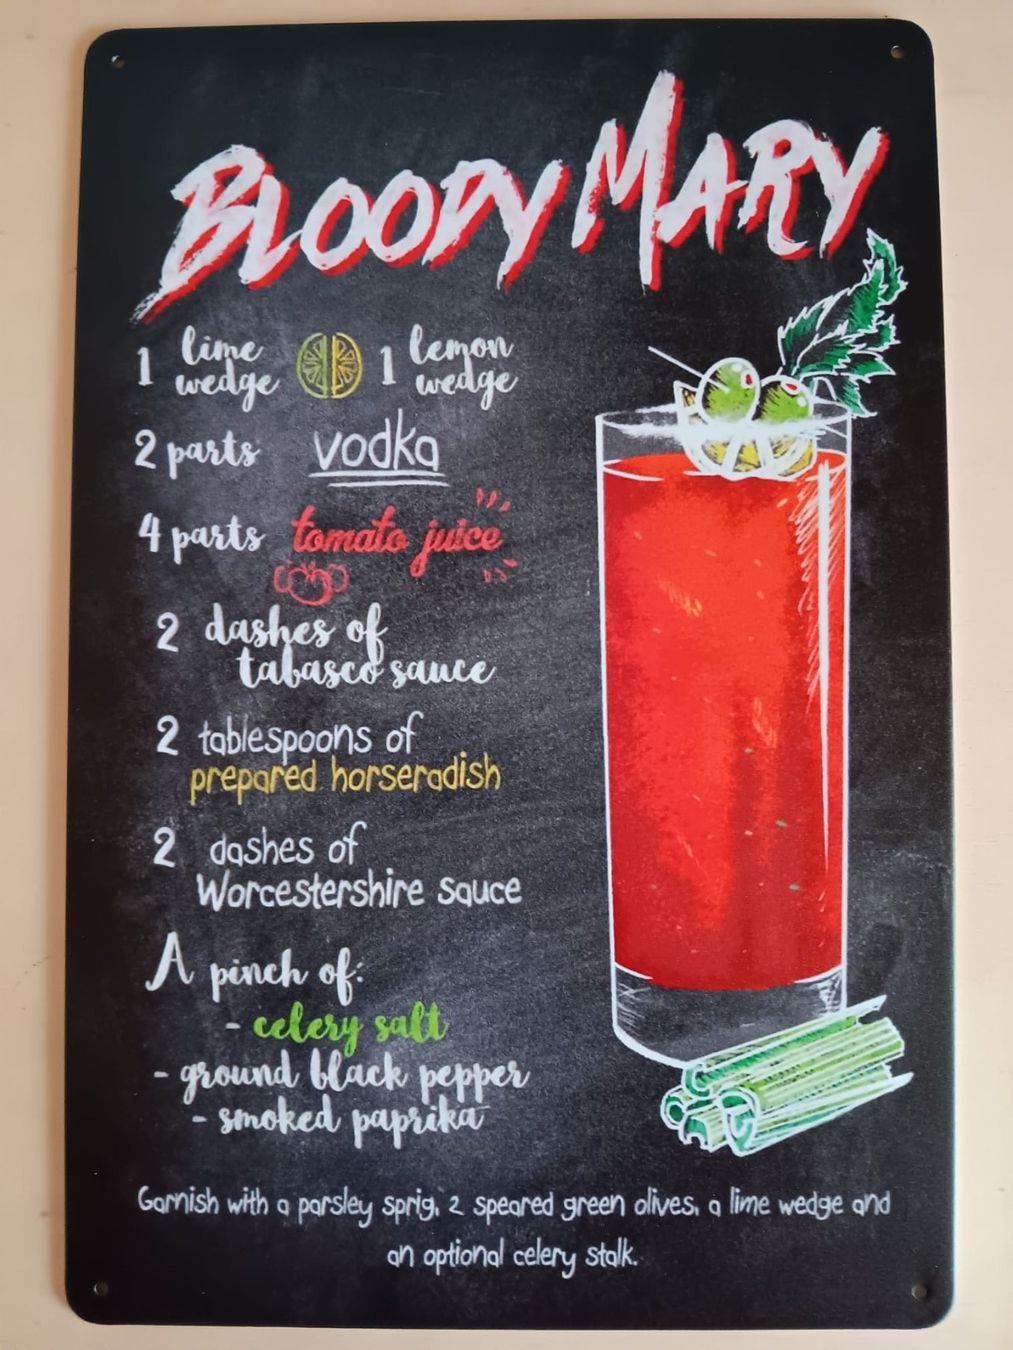 BLOODY MARY
1 lime wedge 1 lemon wedge
2 parts vodka
4 parts tomato juice
2 dashes of
tabasco sauce
2 tablespoons of
prepared horseradish
2 dashes of
Worcestershire sauce
A pinch of:
- celery salt
- ground black pepper
- smoked paprika
Garnish with a parsley sprig, 2 speared green olives, a lime wedge and
an optional celery stalk.